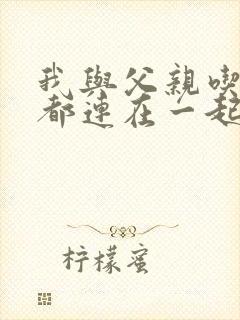 我與父親喫
都連在一起
柠檬蜜